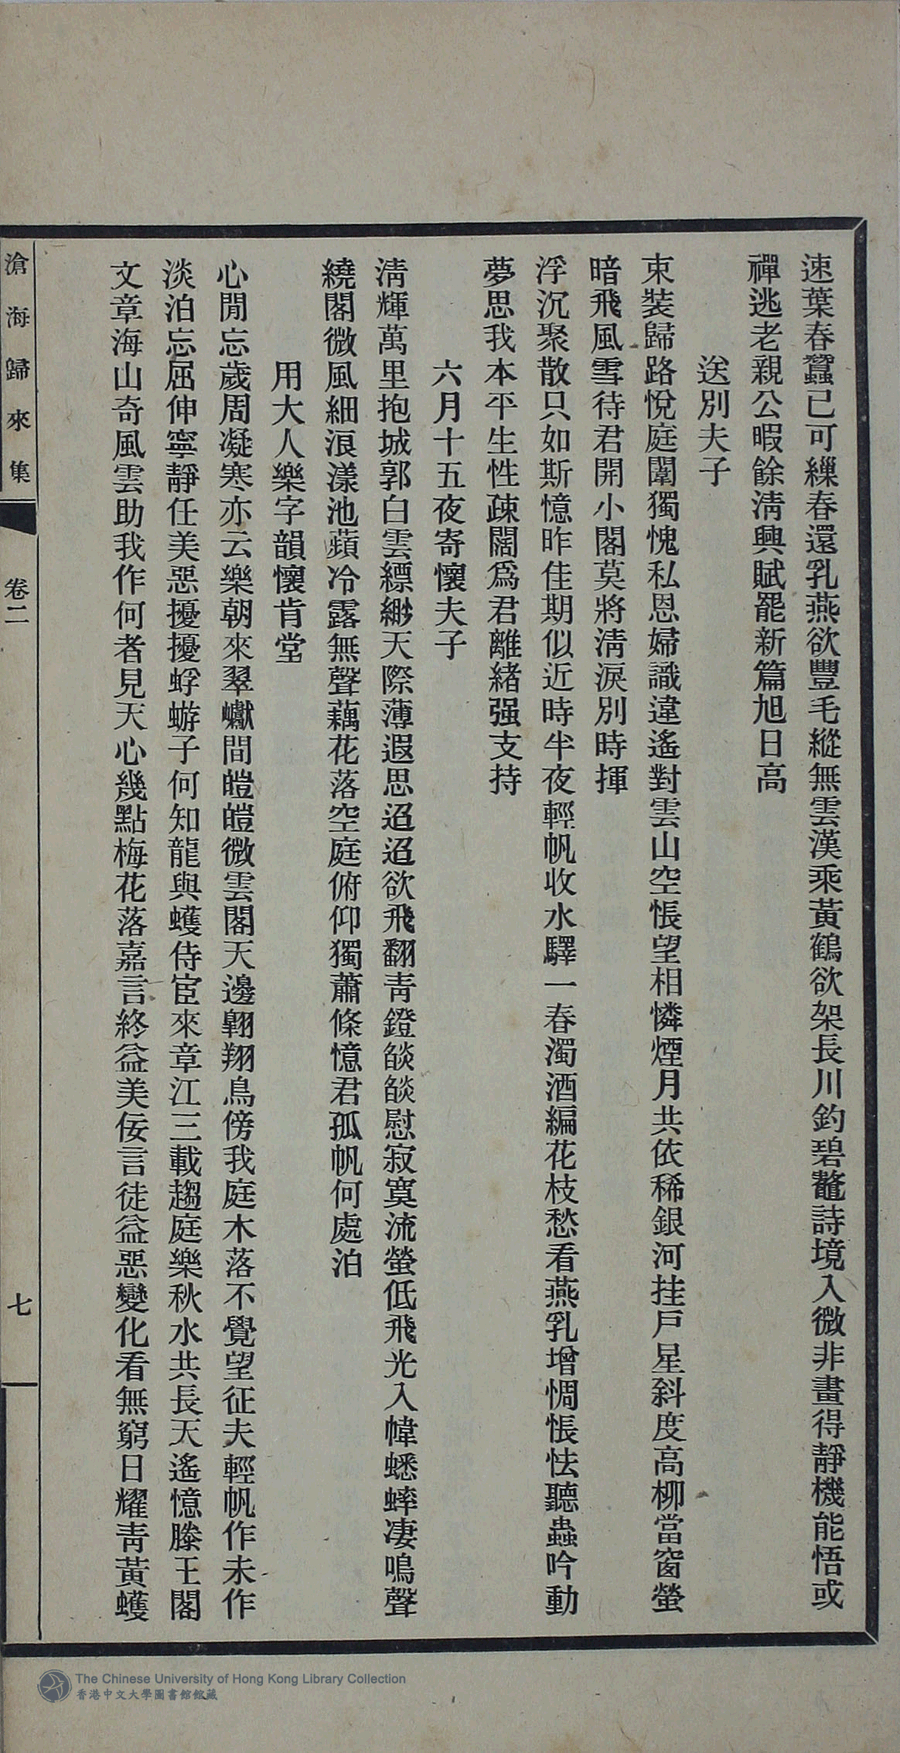 速葉春蠶已可繅春還乳燕欲豐毛縱無雲漢乘黃鶴欲架長川釣碧鼇詩境入微非畫得靜機能悟或
禪逃老親公暇餘淸興賦罷新篇旭日高
送別夫子
束裝歸路悅庭闈獨愧私恩婦識違遙對雲山空悵望相憐煙月共依稀銀河挂戶星斜度高柳當窗螢
暗飛風雪待君開小閣莫將淸淚別時揮
浮沉聚散只如斯憶昨佳期似近時半夜輕帆收水驛一春濁酒編花枝愁看燕乳增惆悵怯聽蟲吟動
夢思我本平生性疎闊爲君離緒强支持
六月十五夜寄懷夫子
淸輝萬里抱城郭白雲縹緲天際薄遐思迢迢欲飛翻靑鐙燄燄慰寂寞流螢低飛光入幃蟋蟀凄鳴聲
繞閣微風細浪漾池蘋冷露無聲藕花落空庭俯仰獨蕭條憶君孤帆何處泊
用大人樂字韻懷肯堂
心閒忘歲周凝寒亦云樂朝來翠巘間皚皚微雲閣天邊翺翔鳥傍我庭木落不覺望征夫輕帆作未作
淡泊忘屈伸寧靜任美惡擾擾蜉蝣子何知龍與蠖侍宦來章江三載趨庭樂秋水共長天遙憶滕王閣
文章海山奇風雲助我作何者見天心幾點梅花落嘉言終益美佞言徒益惡變化看無窮日耀靑黃蠖
滄海歸來集
卷二
七
The Chinese University of Hong Kong Library Collection
香港中文大學圖書館館藏